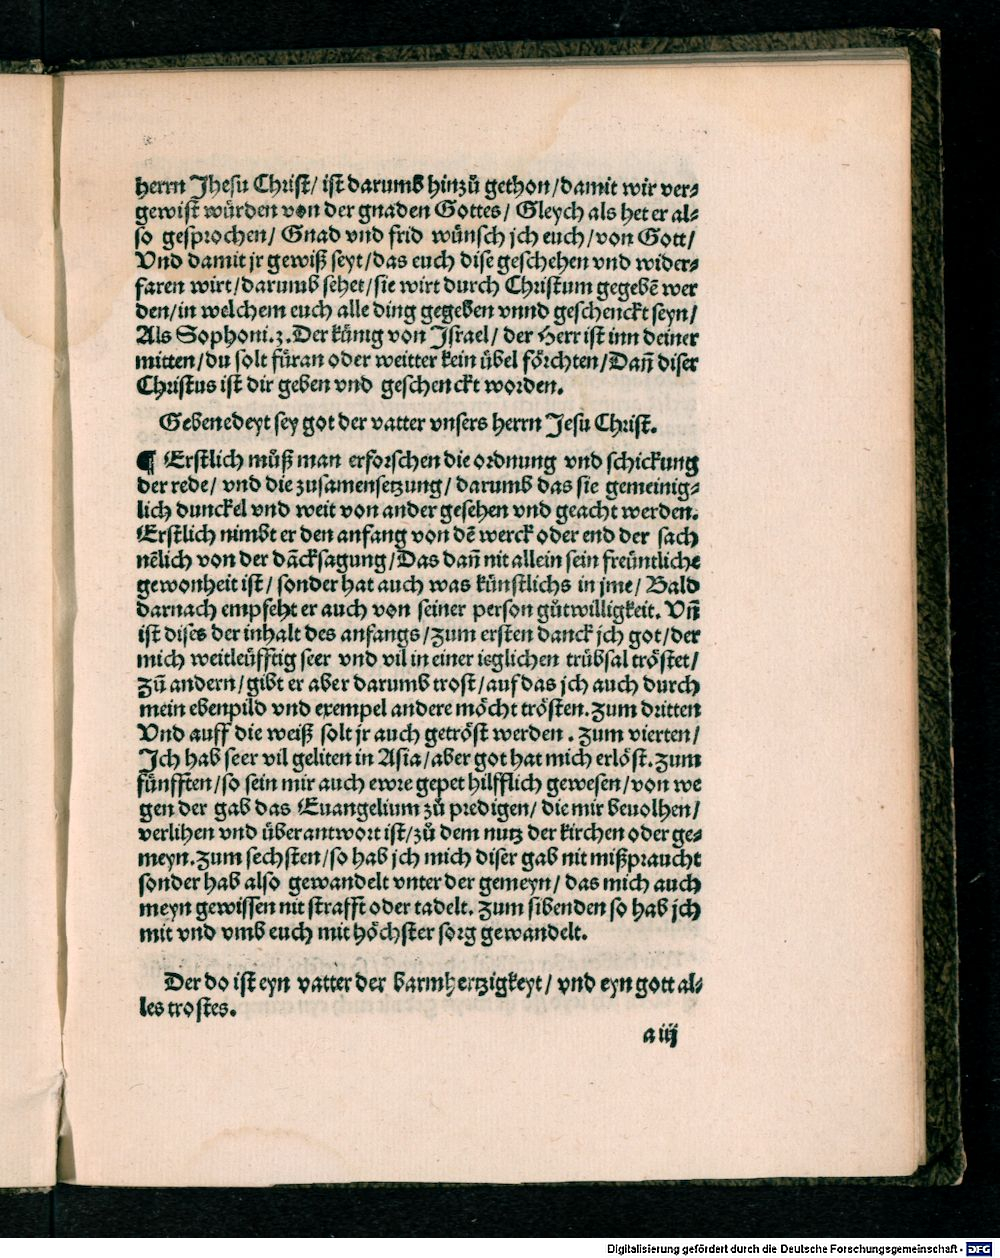 herrn Jhesu Christ/ ist darumb hinzů gethon/damit wir ver⸗
gewist würden von der gnaden Gottes/ Gleych als het er al⸗
so gesprochen/ Gnad vnd frid wünsch jch euch/von Gott/
Vnd damit jr gewiß seyt/das euch dise geschehen vnd wider⸗
faren wirt/darumb sehet/sie wirt durch Christum gegebē wer
den/in welchem euch alle ding gegeben vnnd geschenckt seyn/
Als Sophoni.3.Der künig von Jsrael/ der Herr ist inn deiner
mitten/du solt füran oder weitter kein übel förchten/Dañ diser
Christus ist dir geben vnd geschenckt worden.
Gebenedeyt sey got der vatter vnsers herrn Jesu Christ.
¶ Erstlich můß man erforschen die ordnung vnd schickung
der rede/ vnd die zusamensetzung/ darumb das sie gemeinig⸗
lich dunckel vnd weit von ander gesehen vnd geacht werden.
Erstlich nimbt er den anfang von dē werck oder end der sach
nēlich von der dācksagung/Das dañ nit allein sein freüntliche
gewonheit ist/ sonder hat auch was künstlichs in jme/ Bald
darnach empfeht er auch von seiner person gůtwilligkeit. Vñ
ist dises der inhalt des anfangs/zum ersten danck jch got/der
mich weitleüfftig seer vnd vil in einer ieglichen trübsal tröstet/
Zū andern/gibt er aber darumb trost/auf das jch auch durch
mein ebenpild vnd exempel andere möcht trösten. Zum dritten
Vnd auff die weiß solt jr auch getröst werden . Zum vierten/
Jch hab seer vil geliten in Asia/aber got hat mich erlöst. Zum
fünfften/so sein mir auch ewre gepet hilfflich gewesen/von we
gen der gab das Euangelium zů predigen/ die mir beuolhen/
verlihen vnd überantwort ist/zů dem nutz der kirchen oder ge⸗
meyn. Zum sechsten/so hab jch mich diser gab nit mißpraucht
sonder hab also gewandelt vnter der gemeyn/ das mich auch
meyn gewissen nit strafft oder tadelt. Zum sibenden so hab jch
mit vnd vmb euch mit höchster sorg gewandelt.
Der do ist eyn vatter der barmhertzigkeyt/ vnd eyn gott al⸗
les trostes.
a iij
Digitalisierung gefördert durch die Deutsche Forschungsgemeinschaft - DFG